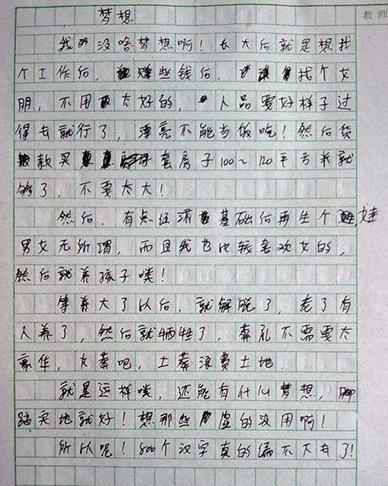 梦想
教师
我没啥梦想啊！长大后就是想找
个工作后，赚些钱后，找个女
朋，不用太好的，人品要好样子过
得去就行了，漂亮不能当饭吃！然后贷
款买套房子100～120平方米就
够了，不要太大！
然后，有点经济基础何再生个娃
男女无所谓，而且我也比较喜欢女的，
然后就养孩子喽！
等养大了以后，就解脱了，老了有
人养了，然后就牺牲了，葬礼不需要太
豪华，火葬吧，土葬浪费土地.
就是这样喽，还能有什么梦想，脚
踏实地就好！想那些虚的没用啊！
所以呢！800个汉字真的编不下去了！